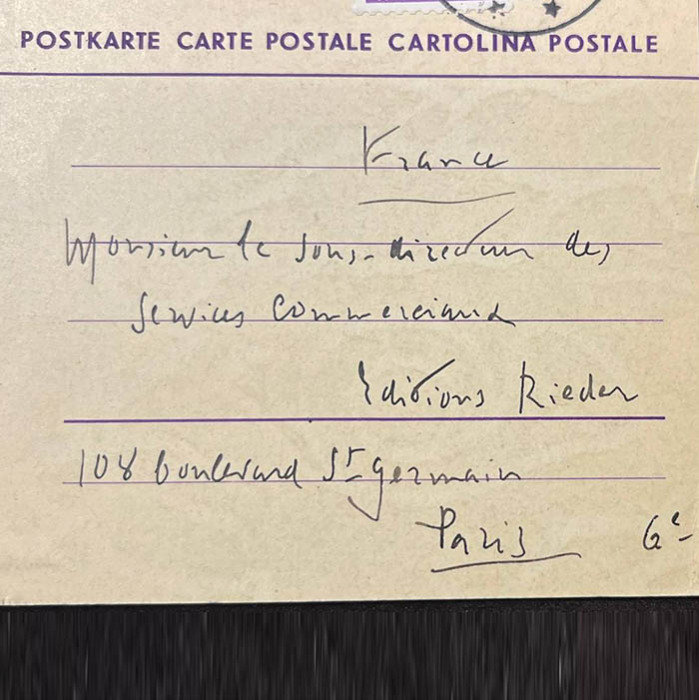 POSTKARTE CARTE POSTALE CARTOLINA POSTALE
France
Monsieur le sous-directeur des
services commerciaux
Editions Rieder
108 boulevard St germain
Paris 6e